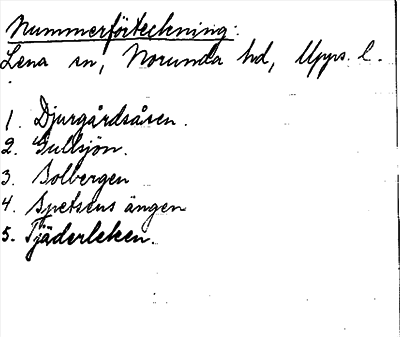 Nummerförteckning:
Lena sn, Norunda hd, Upps. l.
1. Djurgårdsåsen.
2. Gullsjön.
3. Solbergen
4. Spetsens ängen
5. Tjäderleken.